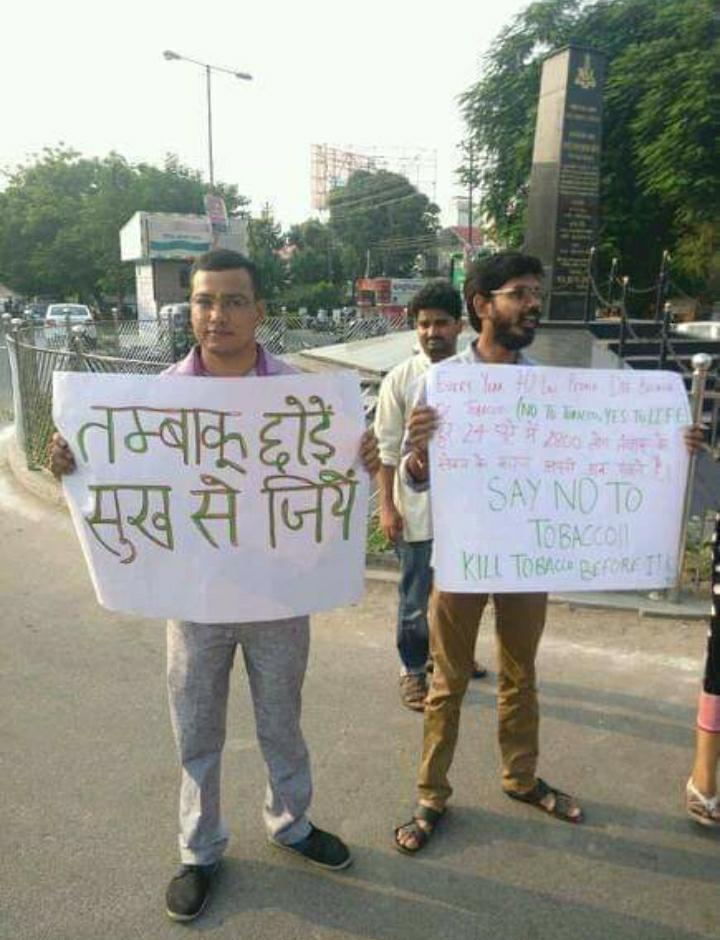 तम्बाकू छोड़ें
सुख से जियें
EVERY YEAR PEOPLE DIE BECAUSE
OF TOBACCO (NO TO TOBACCO, YES TO LIFE
हर 24 घंटे में 2800 लोग तंबाकू के
सेवन के कारण अपनी जान गंवाते है
SAY NO TO
TOBACCO!!
KILL TOBACCO BEFORE IT